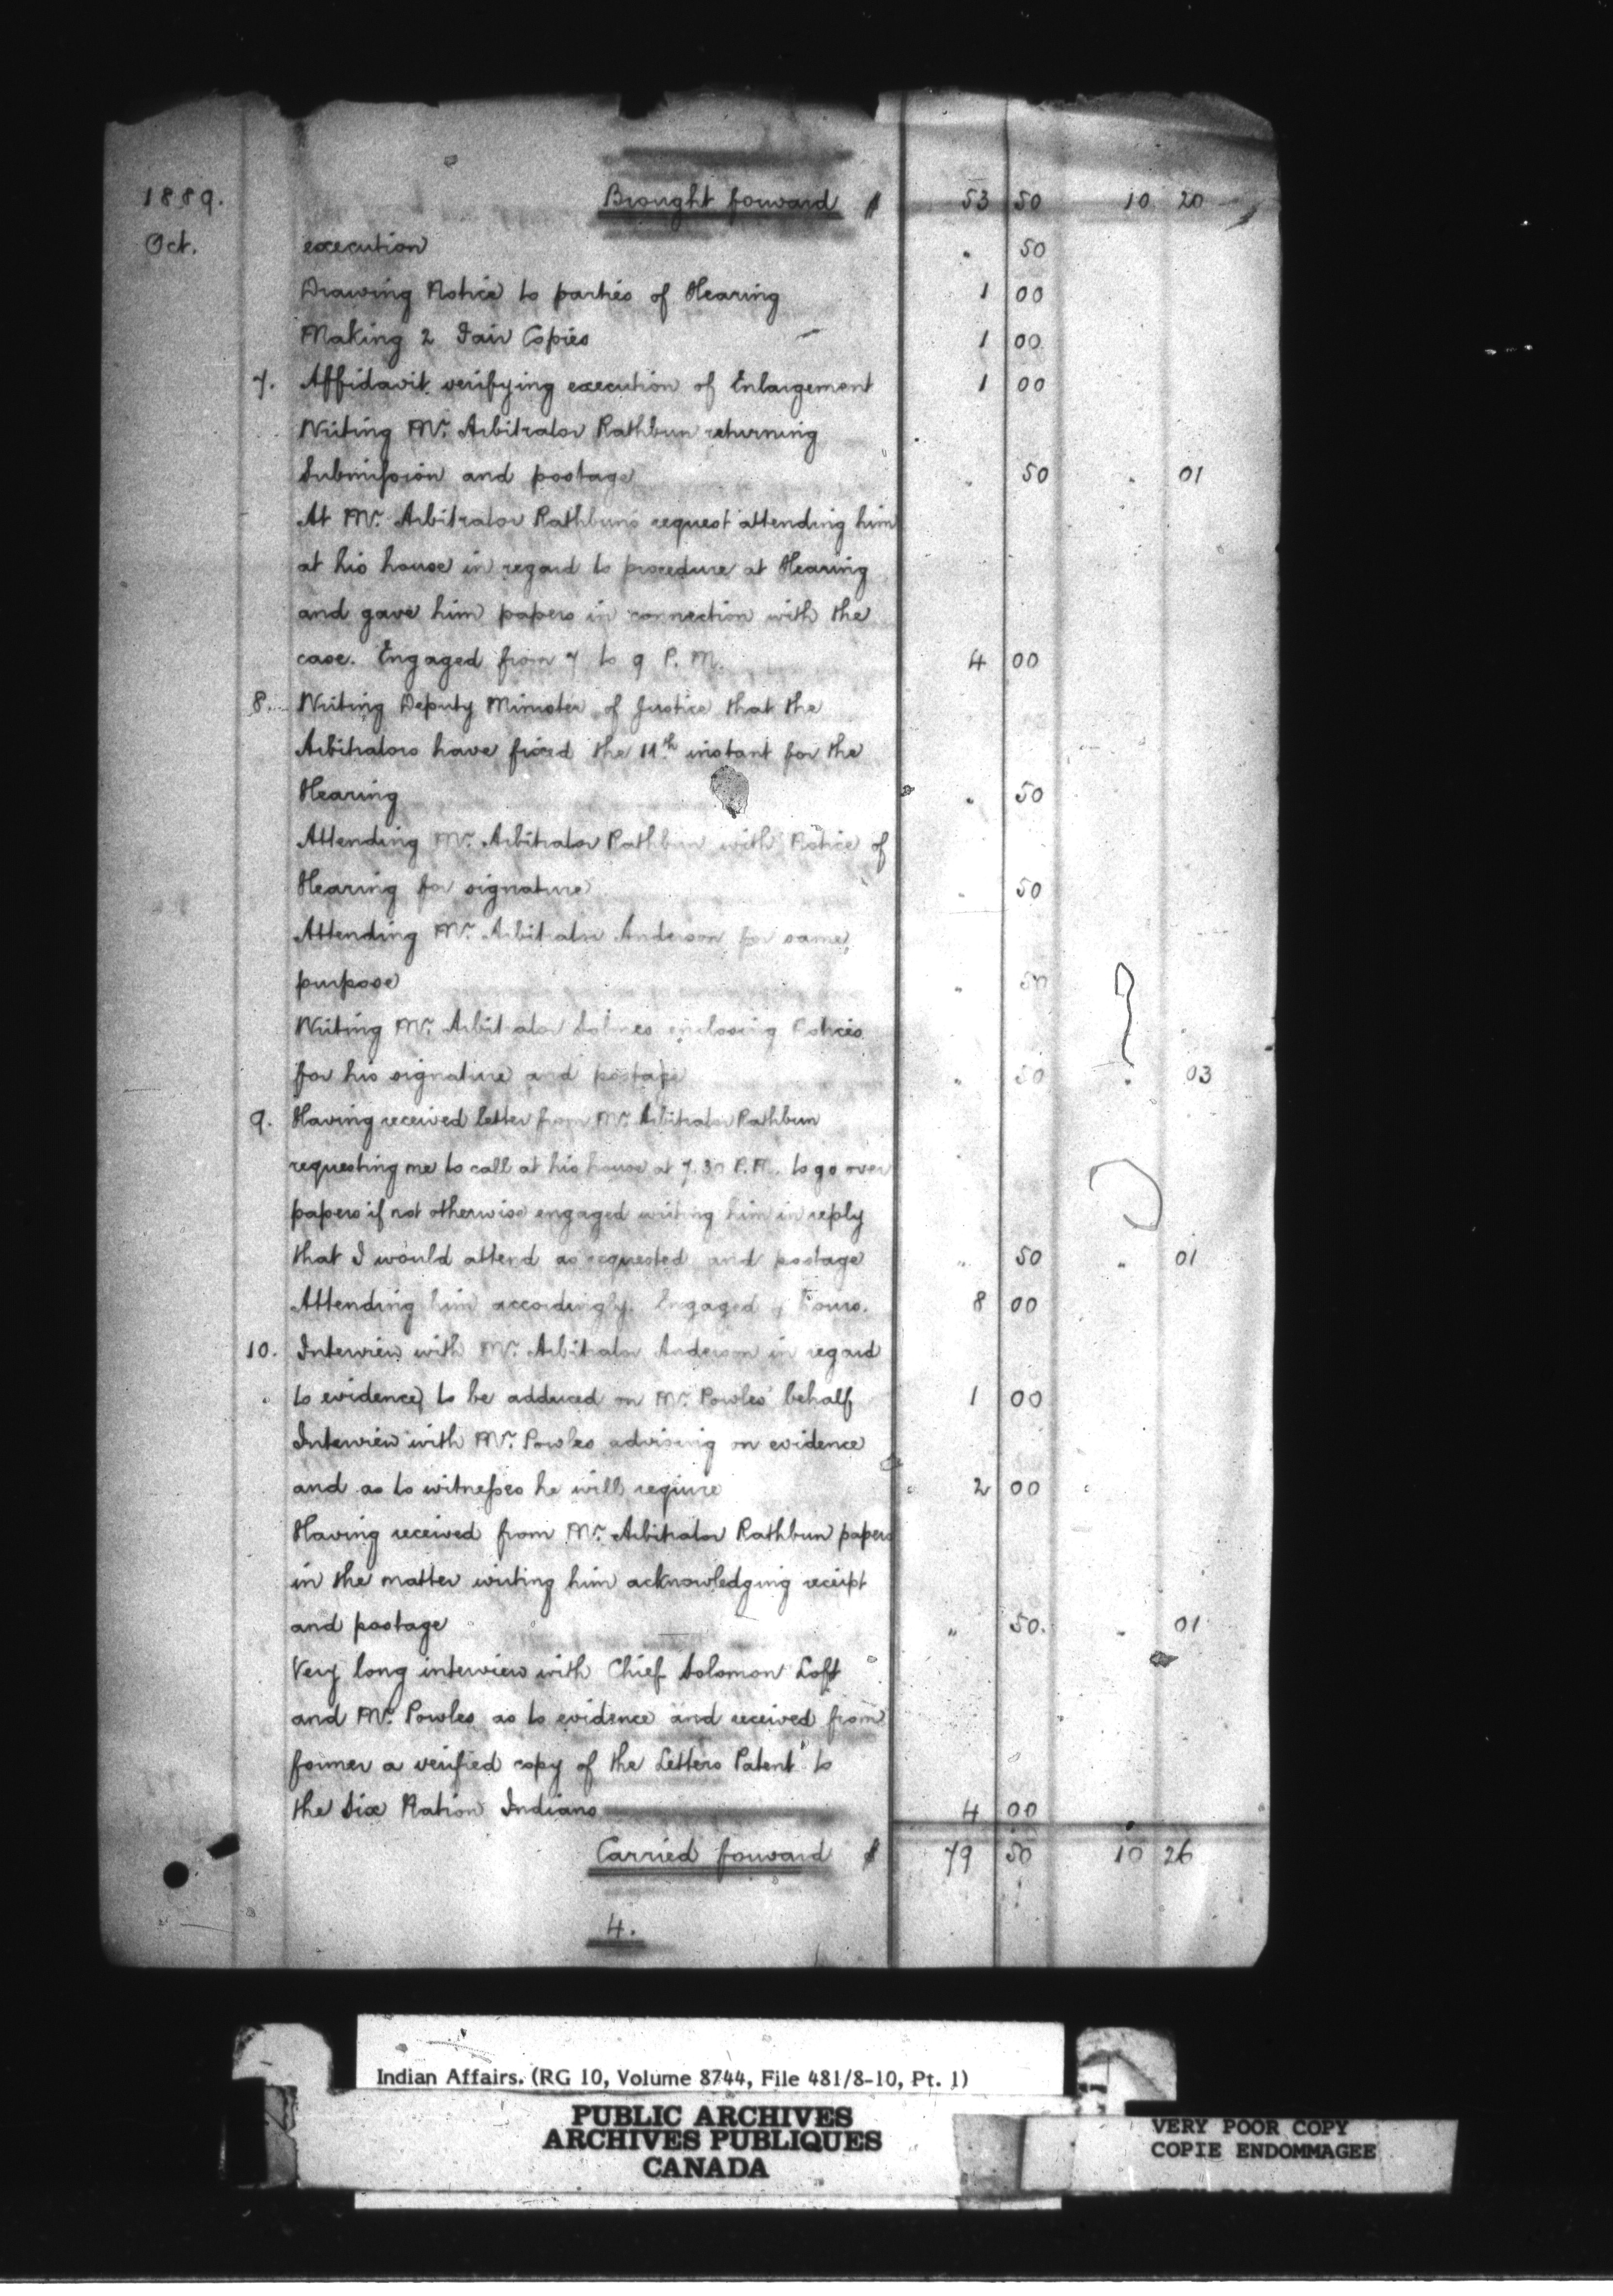 1889. Brought forward $ 53 50 10 20
Oct. execution " 50
Drawing Notice to parties of Hearing 1 00
Making 2 Fair Copies 1 00
7. Affidavit verifying execution of Enlargement 1 00
Writing Mr. Arbitrator Rathbun returning
Submission and postage " 50 " 01
At Mr. Arbitrator Rathbun's request attending him
at his house in regard to procedure at Hearing
and gave him papers in connection with the
case. Engaged from 7 to 9 P.M. 4 00
8. Writing Deputy Minister of Justice that the
Arbitrators have fixed the 11th instant for the
Hearing " 50
Attending Mr. Arbitrator Rathbun with Notice of
Hearing for signature " 50
Attending Mr. Arbitrator Anderson for same
purpose " 50
Writing Mr. Arbitrator enclosing Notices
for his signature and postage " 50 " 03
9. Having received letter from Mr. Arbitrator Rathbun
requesting me to call at his house at 7.30 P.M. to go over
papers if not otherwise engaged writing him in reply
that I would attend as requested and postage " 50 " 01
Attending him accordingly. Engaged hours. 8 00
10. Interview with Mr. Arbitrator Anderson in regard
to evidence to be adduced on Mr. Powles' behalf 1 00
Interview with Mr. Powles advising on evidence
and as to witnesses he will require 2 00
Having received from Mr. Arbitrator Rathbun papers
in the matter writing him acknowledging receipt
and postage " 50. " 01
Very long interview with Chief Solomon Loft
and Mr. Powles as to evidence and received from
former a verified copy of the Letters Patent to
the Six Nation Indians 4 00
Carried forward $ 79 50 10 26
4.
Indian Affairs. (RG 10, Volume 8744, File 481/8-10, Pt. 1)
PUBLIC ARCHIVES
ARCHIVES PUBLIQUES
CANADA
VERY POOR COPY
COPIE ENDOMMAGEE